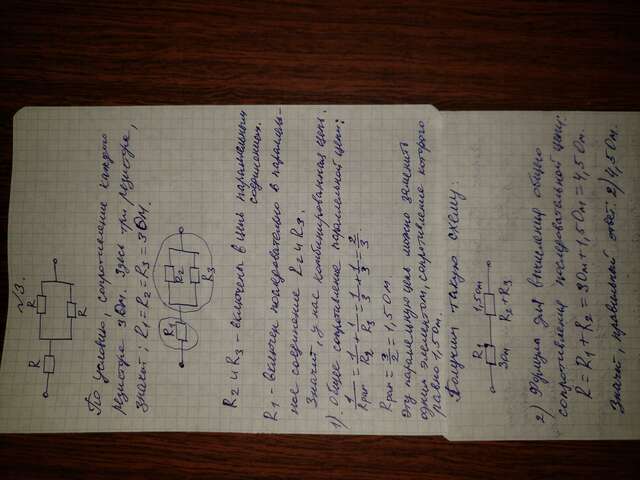 №3.
R
R
R
По условию, сопротивление каждого
резистра 3 Ом. Здесь три резистра,
значит; R1=R2=R3=3 Ом.
R1
R2
R3
R2 и R3 - включены в цепь параллельным
соединением.
R1 - включен последовательно в параллель-
ное соединение R2 и R3.
Значит, у нас комбинированная цепь.
1) Общее сопротивление параллельной цепи:
1/Rпар = 1/R2 + 1/R3 = 1/3 + 1/3 = 2/3
Rпар = 3/2 = 1,5 Ом
Эту параллельную цепь можно заменить
одним элементом, сопротивление которого
равно 1,5 Ом.
Получим такую схему:
R 1,5 Ом
3 Ом R2+R3
2) Формула для вычисления общего
сопротивления последовательной цепи:
R=R1+R2=3 Ом+1,5 Ом=4,5 Ом.
Значит, правильный ответ: 2) 4,5 Ом.